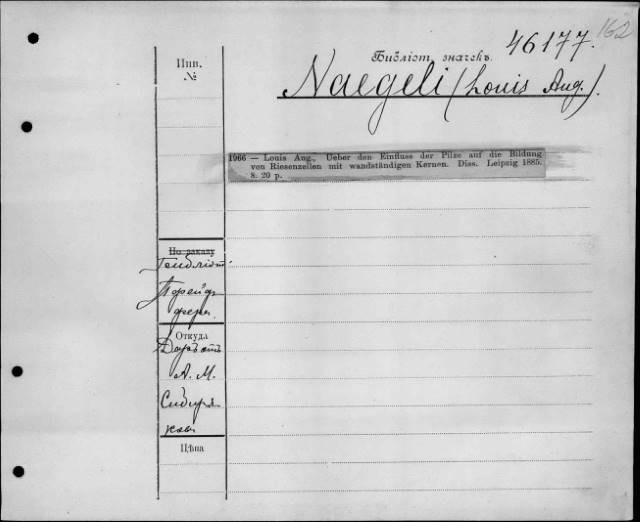 162
46177.
Библіот. значекъ.
Инв.
№
Naegeli (Louis Aug.).
1966 — Louis Aug., Ueber den Einfluss der Pilze auf die Bildung
von Riesenzellen mit wandständigen Kernen. Diss. Leipzig 1885.
8. 20 p.
По заказу
Откуда
Даръ отъ
А. М.
Сибиря
кова
Цѣна